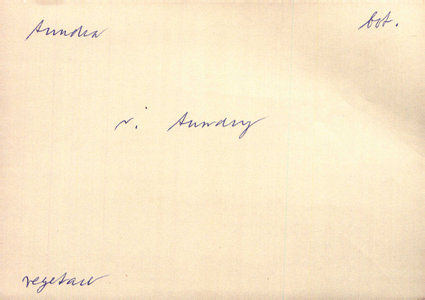 tundra bot.
v. tundry
vegetace